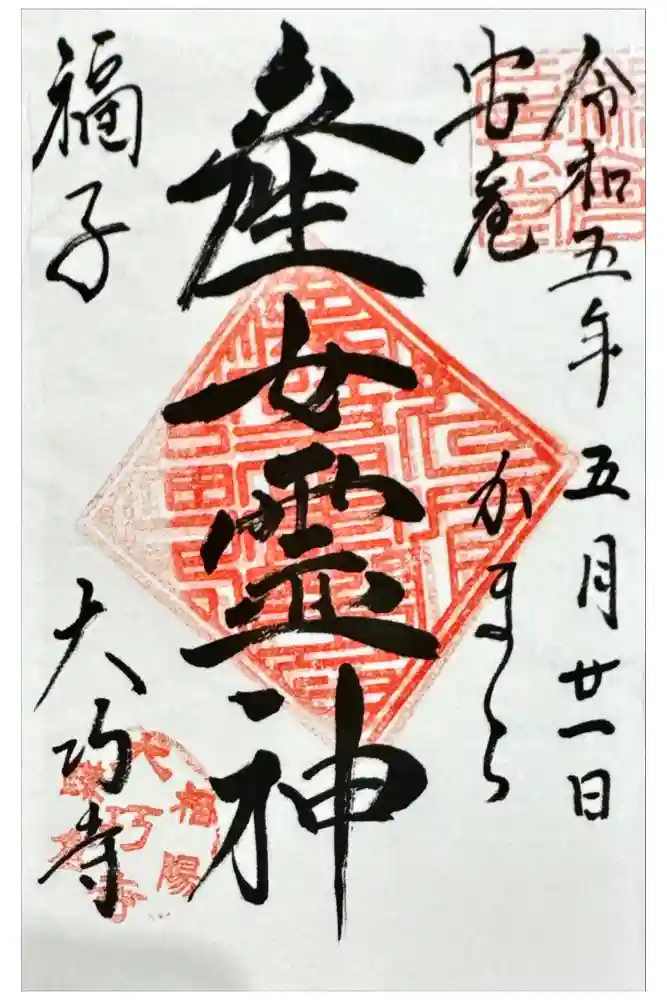 令和五年五月廿一日
安産
かまくら
産女霊神
福子
大巧寺
福陽
大巧寺